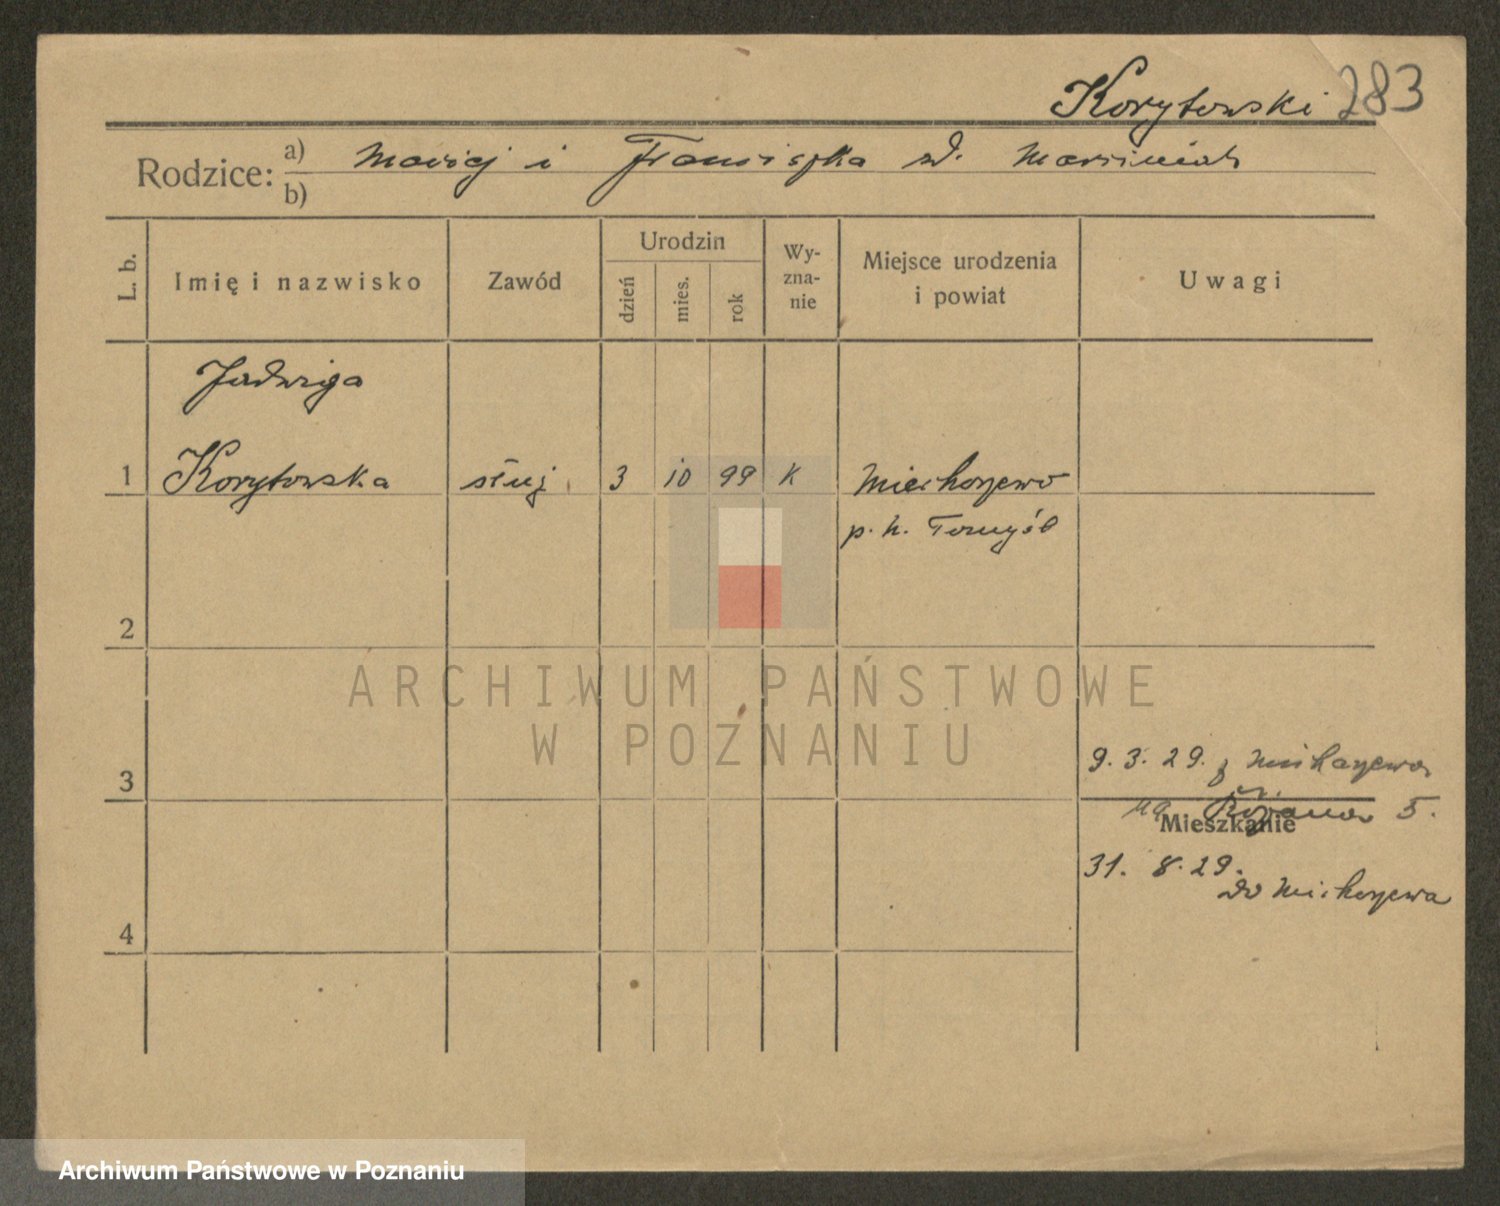 Korytowski 283
Rodzice: a) Maciej i Franciszka zd. Marciniak
b)
L. b. Imię i nazwisko Zawód Urodzin dzień mies. rok Wy-zna-nie Miejsce urodzenia i powiat Uwagi
Jadwiga
1 Korytowska służ 3 10 99 K Miechorzewo
p. N. Tomyśl
2
ARCHIWUM PAŃSTWOWE
W POZNANIU
3 9. 3. 29. z
na 5.
Mieszkanie
31. 8. 29.
do
4
Archiwum Państwowe w Poznaniu